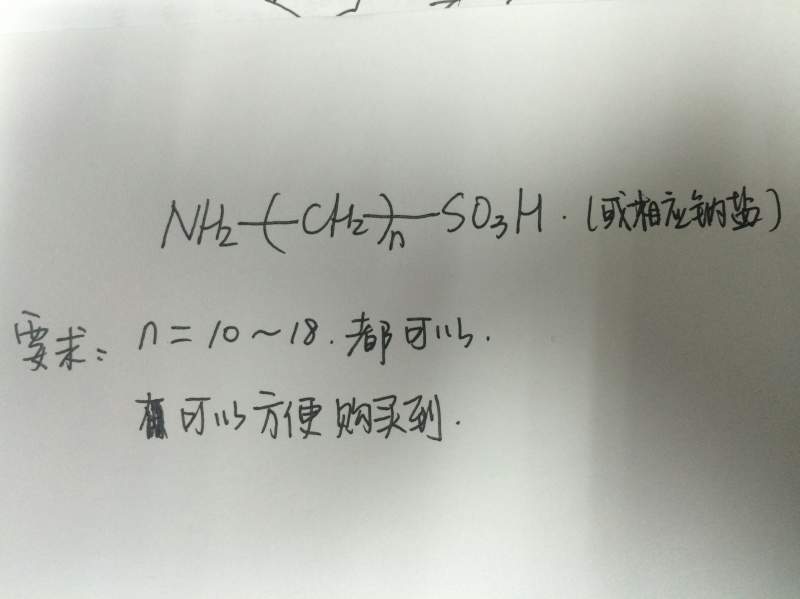 NH₂-(CH₂)ₙ-SO₃H.(或相应钠盐)
要求: n=10~18.都可以.
可以方便购买到.